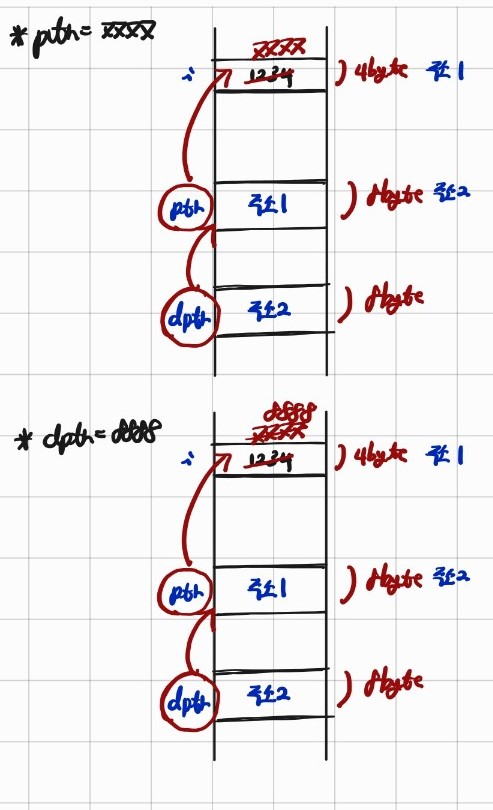 * ptr= 7777
7777
i 1234 4byte 주소1
ptr 주소1 8byte 주소2
dptr 주소2 8byte
* dptr= 8888
8888
7777
i 1234 4byte 주소1
ptr 주소1 8byte 주소2
dptr 주소2 8byte